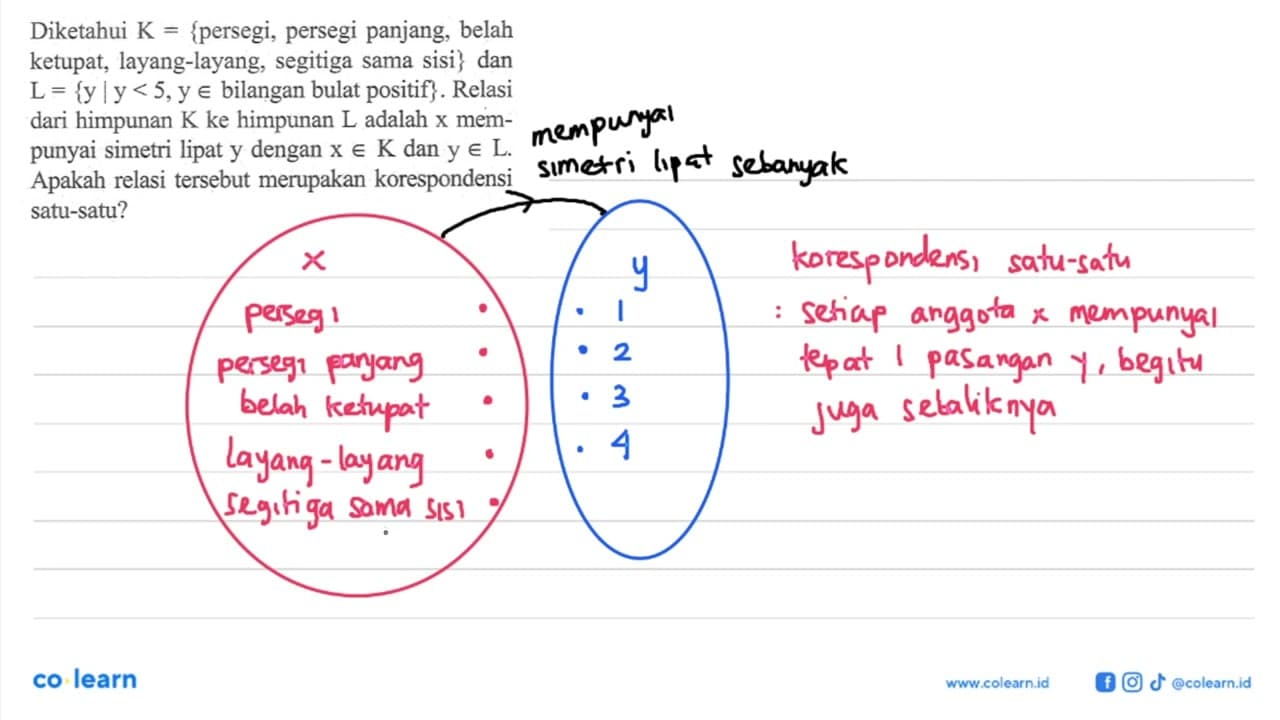 Diketahui K = {persegi, persegi panjang, belah
ketupat, layang-layang, segitiga sama sisi} dan
L = {y | y < 5, y ∈ bilangan bulat positif}. Relasi
dari himpunan K ke himpunan L adalah x mem-
punyai simetri lipat y dengan x ∈ K dan y ∈ L.
Apakah relasi tersebut merupakan korespondensi
satu-satu?
mempunyai
simetri lipat sebanyak
x
persegi
persegi panjang
belah ketupat
layang-layang
segitiga sama sisi
y
1
2
3
4
korespondensi satu-satu
: setiap anggota x mempunyai
tepat 1 pasangan y, begitu
juga sebaliknya
co learn
www.colearn.id
@colearn.id